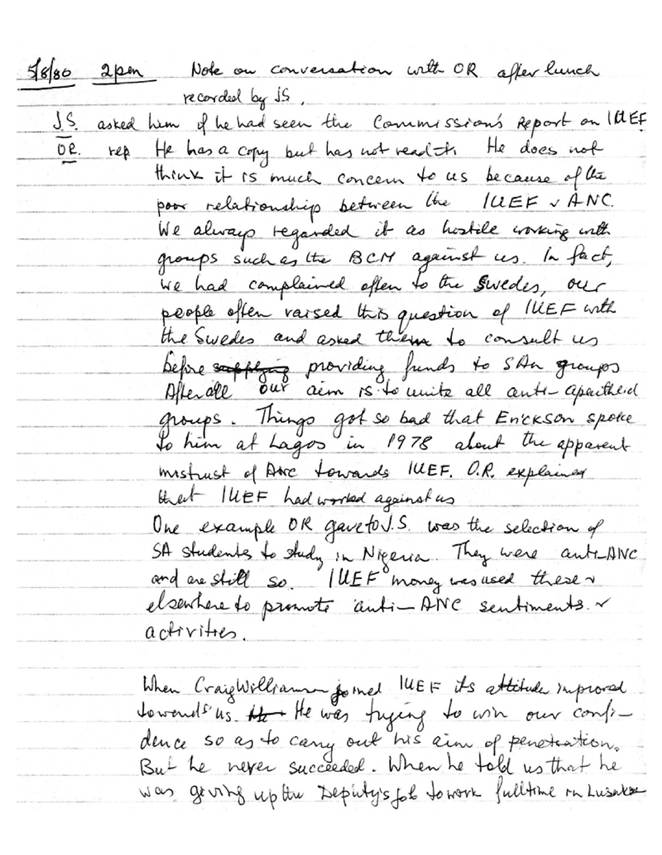 5/8/80 2pm Note on conversation with OR after lunch
recorded by JS.
J.S. asked him if he had seen the Commission's Report on IUEF
OR. rep He has a copy but has not read it. He does not
think it is much concern to us because of the
poor relationship between the IUEF & ANC.
We always regarded it as hostile working with
groups such as the BCM against us. In fact,
we had complained often to the Swedes, our
people often raised this question of IUEF with
the Swedes and asked them to consult us
before supplying providing funds to SAn groups
After all our aim is to unite all anti-apartheid
groups. Things got so bad that Erickson spoke
to him at Lagos in 1978 about the apparent
mistrust of ANC towards IUEF. O.R. explained
that IUEF had worked against us
One example OR gave to J.S. was the selection of
SA students to study in Nigeria. They were anti-ANC
and are still so. IUEF money was used there &
elsewhere to promote anti-ANC sentiments &
activities.
When Craig Williamson joined IUEF its attitude improved
towards us. He He was trying to win our confi-
dence so as to carry out his aim of penetration.
But he never succeeded. When he told us that he
was giving up the Deputy's job to work fulltime in Lusaka